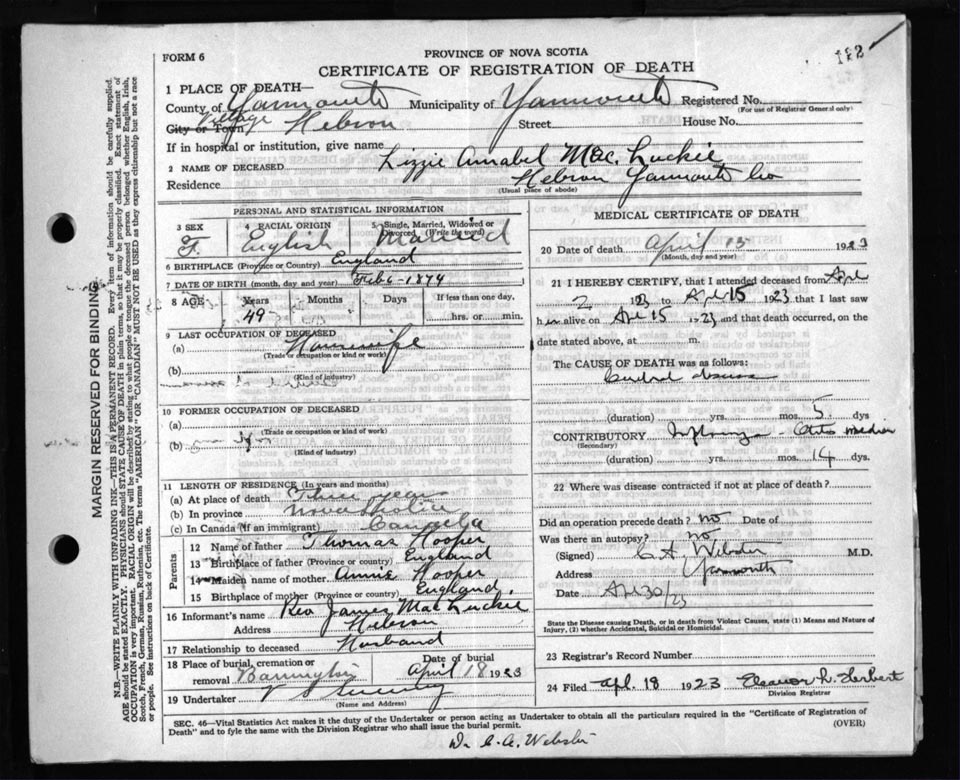 182
FORM 6
PROVINCE OF NOVA SCOTIA
CERTIFICATE OF REGISTRATION OF DEATH
1 PLACE OF DEATH—
County of Yarmouth Municipality of Yarmouth Registered No.
(For use of Registrar General only)
Village
City or Town Hebron Street House No.
If in hospital or institution, give name
2 NAME OF DECEASED Lizzie Annabel MacLuckie
Residence Hebron Yarmouth Co
(Usual place of abode)
PERSONAL AND STATISTICAL INFORMATION
3 SEX F. 4 RACIAL ORIGIN English 5 Single, Married, Widowed or Divorced (Write the word) Married
6 BIRTHPLACE (Province or Country) England
7 DATE OF BIRTH (month, day and year) Feb 6-1874
8 AGE Years 49 Months Days If less than one day, hrs. or min.
9 LAST OCCUPATION OF DECEASED
(a) Housewife
(Trade or occupation or kind or work)
(b)
(Kind of industry)
10 FORMER OCCUPATION OF DECEASED
(a)
(Trade or occupation or kind of work)
(b)
(Kind of industry)
11 LENGTH OF RESIDENCE (In years and months)
(a) At place of death Three years
(b) In province Nova Scotia
(c) In Canada (if an immigrant) Canada
Parents
12 Name of father Thomas Hooper
13 Birthplace of father (Province or Country) England
14 Maiden name of mother Annie Hooper
15 Birthplace of mother (Province or country) England
16 Informant's name Rev James MacLuckie
Address Hebron
17 Relationship to deceased Husband
18 Place of burial, cremation or removal Barrington Date of burial April 18 1923
19 Undertaker V S Sweeny
(Name and Address)
MEDICAL CERTIFICATE OF DEATH
20 Date of death April 15 1923
(Month, day and year)
21 I HEREBY CERTIFY, that I attended deceased from Apl
2 1923 to Apl 15 1923 that I last saw
h er alive on Apl 15 1923 and that death occurred, on the
date stated above, at m.
The CAUSE OF DEATH was as follows:
abscess
(duration) yrs. mos. 5 dys
CONTRIBUTORY Influenza - Otitis media
(Secondary)
(duration) yrs. mos. 14 dys.
22 Where was disease contracted if not at place of death?
Did an operation precede death? no Date of
Was there an autopsy? no
(Signed) C. A. Webster M.D.
Address Yarmouth
Date Apl 30/23
State the Disease causing Death, or in death from Violent Causes, state (1) Means and Nature of Injury, (2) whether Accidental, Suicidal or Homicidal.
23 Registrar's Record Number
24 Filed Apl. 18 1923 Eleanor L. Herbert
Division Registrar
SEC. 46—Vital Statistics Act makes it the duty of the Undertaker or person acting as Undertaker to obtain all the particulars required in the "Certificate of Registration of
Death" and to fyle the same with the Division Registrar who shall issue the burial permit. (OVER)
Dr. C. A. Webster
MARGIN RESERVED FOR BINDING
N.B.—WRITE PLAINLY WITH UNFADING INK—THIS IS A PERMANENT RECORD. Every item of information should be carefully supplied.
AGE should be stated EXACTLY. PHYSICIANS should STATE CAUSE OF DEATH in plain terms, so that it may be properly classified. Exact statement of
OCCUPATION is very important. RACIAL ORIGIN will be described by stating to what people or tongue the deceased person belonged whether English, Irish,
Scotch, French, German, Russian, Ruthenian, etc. The terms "AMERICAN" OR "CANADIAN" MUST NOT BE USED as they express citizenship but not a race
or people. See instructions on back of Certificate.